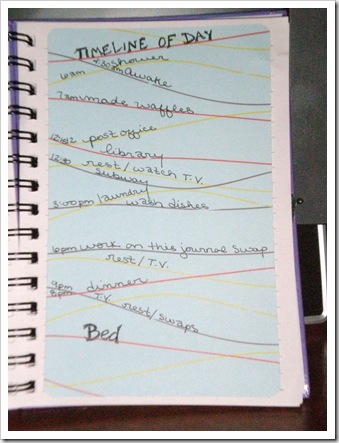 TIMELINE OF DAY
shower
6am awake
7am made waffles
post office
library
rest/watch T.V.
subway
3:00pm laundry
wash dishes
6pm work on this journal swap
rest/T.V.
9pm dinner
8pm T.V. rest/swaps
Bed